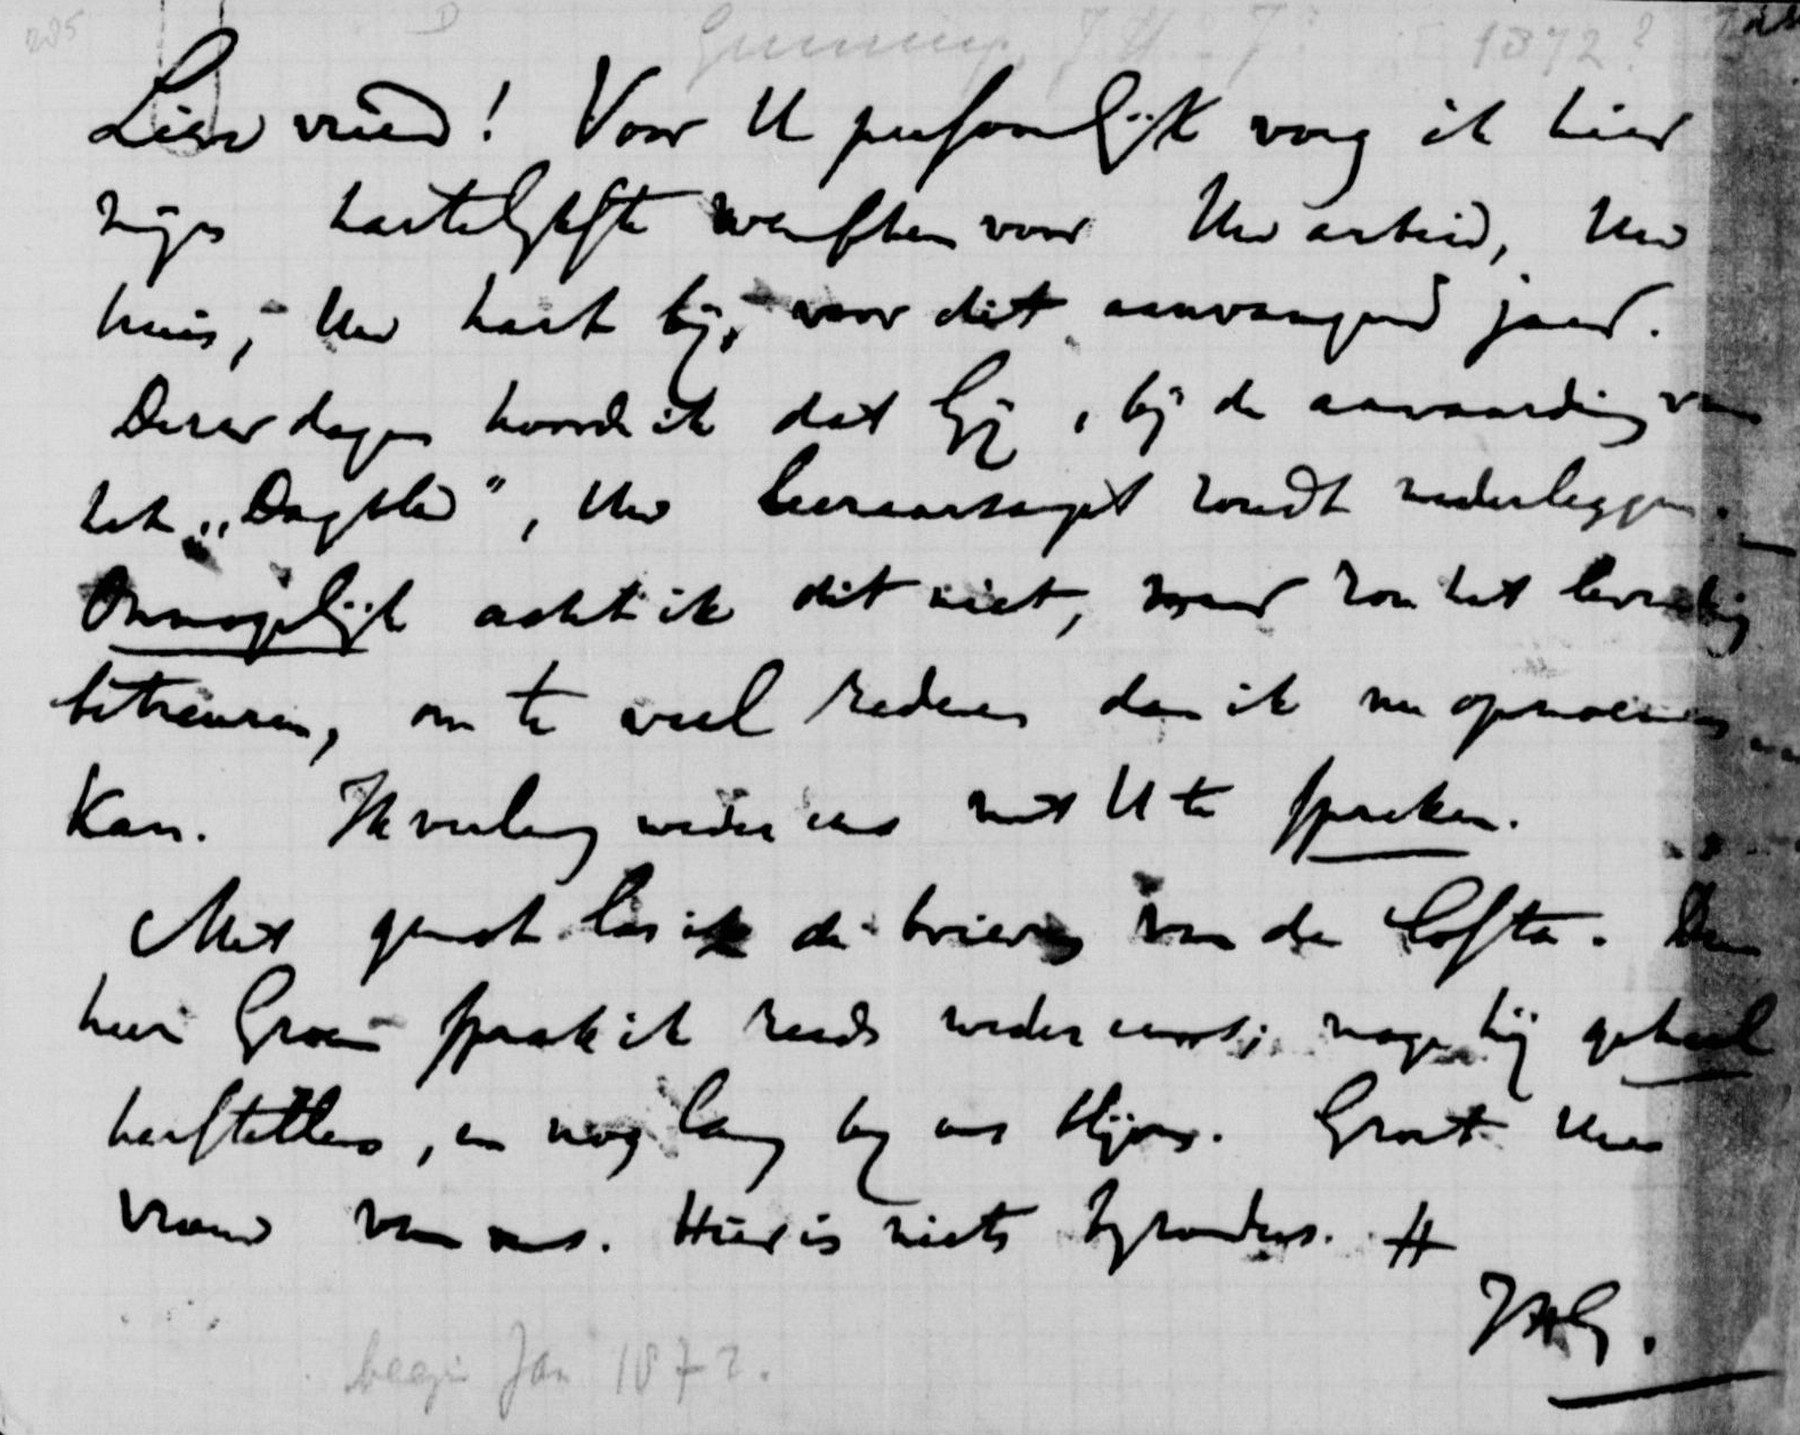 205 Gunning, J H Jr 1872?
Lieve vriend! Voor U persoonlijk voeg ik hier
mijn hartelijkste wenschen voor Uw arbeid, Uw
huis, Uw hart bij, voor dit aanvangend jaar.
Dezer dagen hoorde ik dat Gij, bij de aanvaarding van
het „Dagblad", Uw leeraarsambt zoudt nederleggen.
Onmogelijk acht ik dit niet, maar zou het
betreuren, om te veel redenen dan ik nu opnoemen
kan. Ik verlang weder eens met U te spreken.
Met genot las ik de brieven van da Costa. Den
heer Groen sprak ik reeds weder eens; moge hij geheel
herstellen, en nog lang bij ons blijven. Groet Uwe
vrouw van ons. Hier is niets byzonders. tt
JHG.
begin Jan 1872.